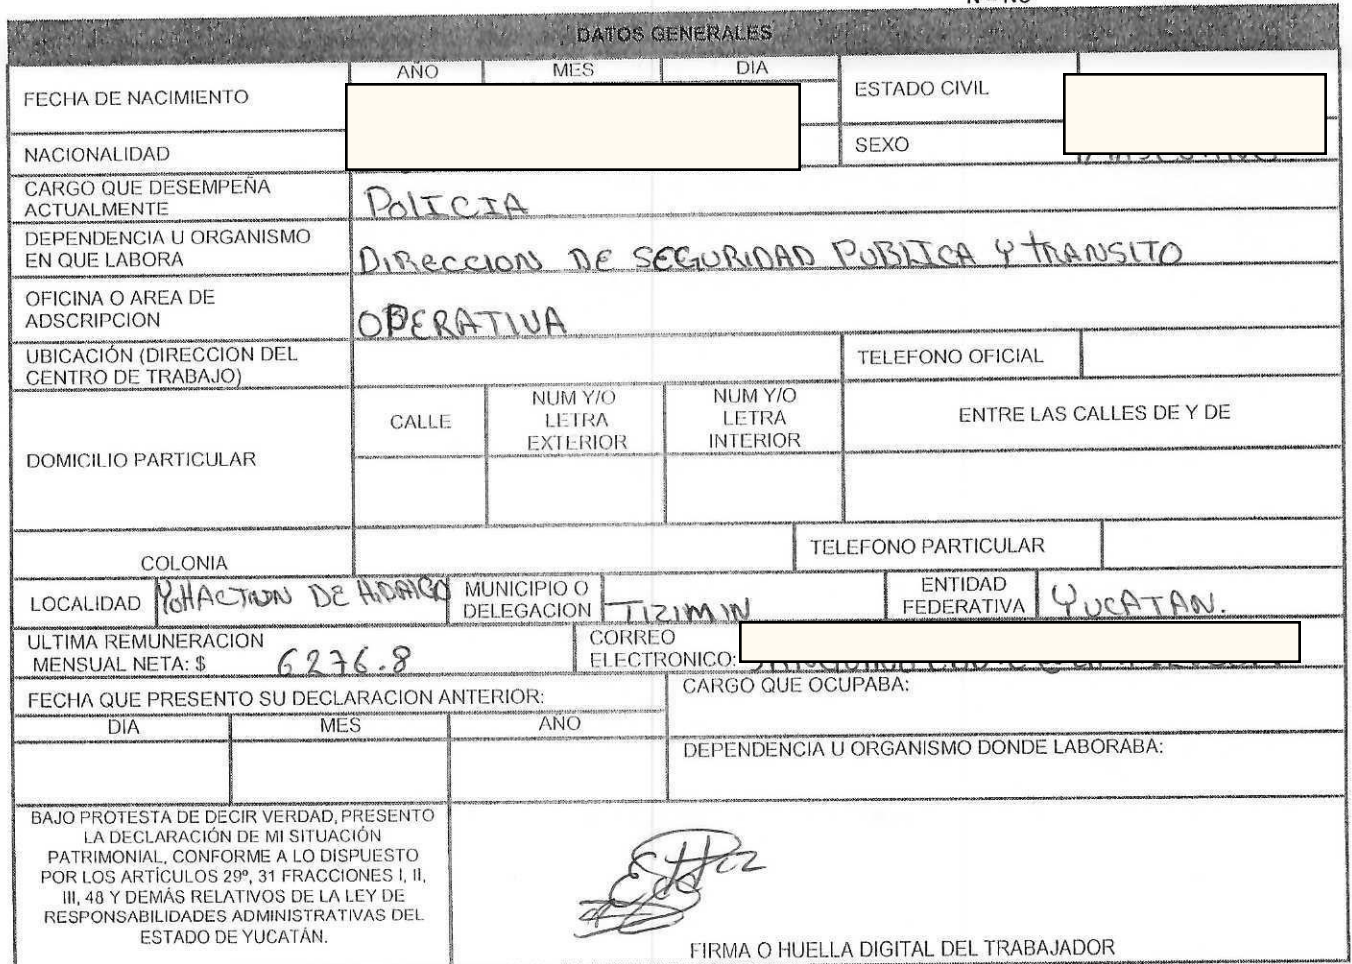 DATOS GENERALES
AÑO MES DIA
FECHA DE NACIMIENTO
ESTADO CIVIL
NACIONALIDAD
SEXO
CARGO QUE DESEMPEÑA
ACTUALMENTE
POLICIA
DEPENDENCIA U ORGANISMO
EN QUE LABORA
DIRECCION DE SEGURIDAD PUBLICA Y TRANSITO
OFICINA O AREA DE
ADSCRIPCION
OPERATIVA
UBICACIÓN (DIRECCION DEL
CENTRO DE TRABAJO)
TELEFONO OFICIAL
DOMICILIO PARTICULAR
CALLE
NUM Y/O
LETRA
EXTERIOR
NUM Y/O
LETRA
INTERIOR
ENTRE LAS CALLES DE Y DE
COLONIA
TELEFONO PARTICULAR
LOCALIDAD
DE HIDALGO
MUNICIPIO O
DELEGACION
TIZIMIN
ENTIDAD
FEDERATIVA
YUCATAN.
ULTIMA REMUNERACION
MENSUAL NETA: $ 6276.8
CORREO
ELECTRONICO:
FECHA QUE PRESENTO SU DECLARACION ANTERIOR:
DIA MES AÑO
CARGO QUE OCUPABA:
DEPENDENCIA U ORGANISMO DONDE LABORABA:
BAJO PROTESTA DE DECIR VERDAD, PRESENTO
LA DECLARACIÓN DE MI SITUACIÓN
PATRIMONIAL, CONFORME A LO DISPUESTO
POR LOS ARTÍCULOS 29º, 31 FRACCIONES I, II,
III, 48 Y DEMÁS RELATIVOS DE LA LEY DE
RESPONSABILIDADES ADMINISTRATIVAS DEL
ESTADO DE YUCATÁN.
FIRMA O HUELLA DIGITAL DEL TRABAJADOR